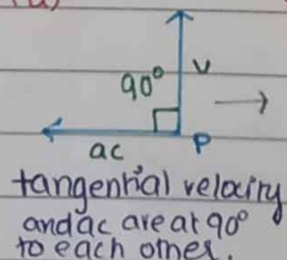 90° V
ac P
tangential velocity
and ac are at 90°
to each other.